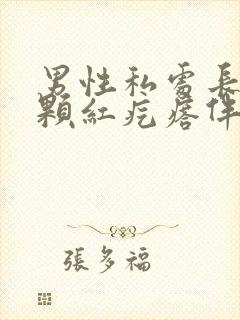 男性私處長
顆紅疙瘩伴
張多福